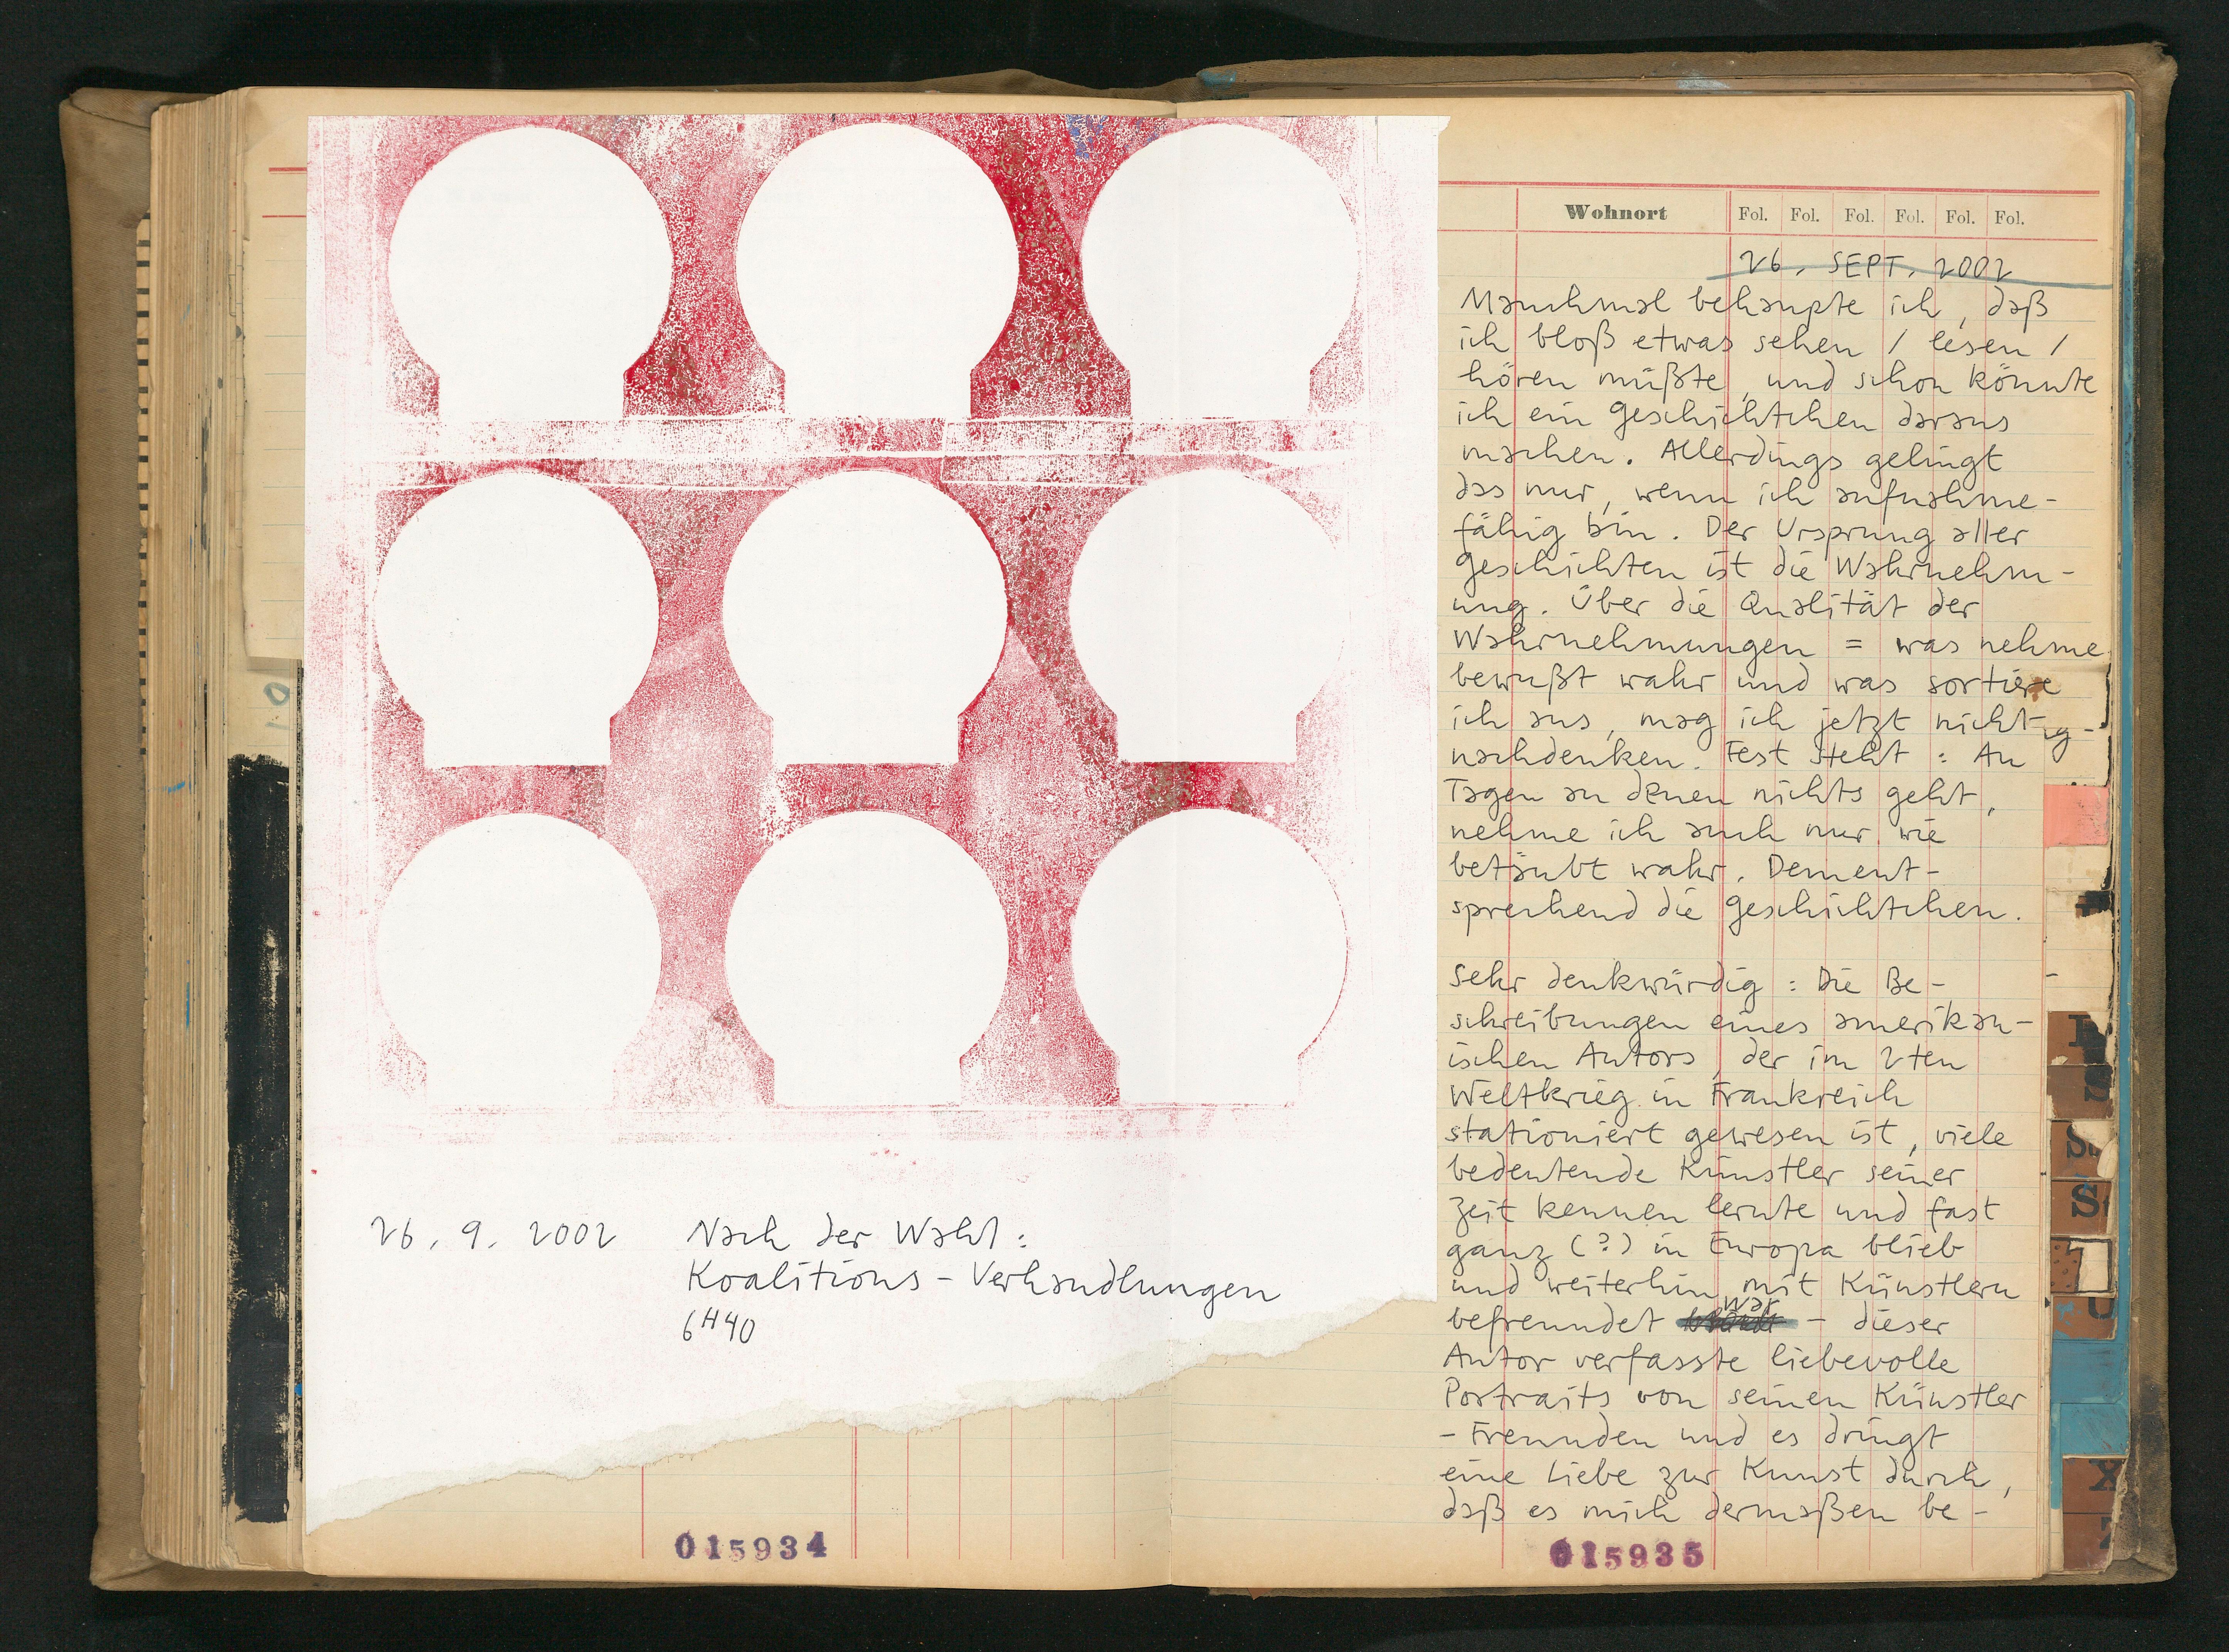 26. 9. 2002 Nach der Wahl:
Koalitions-Verhandlungen
6H40
015934
Wohnort Fol. Fol. Fol. Fol. Fol. Fol.
26. SEPT. 2002
Manchmal behaupte ich, daß
ich bloß etwas sehen / lesen /
hören müßte, und schon könnte
ich ein Geschichtchen daraus
machen. Allerdings gelingt
das nur, wenn ich aufnahme-
fähig bin. Der Ursprung aller
Geschichten ist die Wahrnehm-
ung. Über die Qualität der
Wahrnehmungen = was nehme
bewußt wahr und was sortiere
ich aus, mag ich jetzt nicht
nachdenken. Fest steht: An
Tagen an denen nichts geht,
nehme ich auch nur wie
betäubt wahr. Dement-
sprechend die Geschichtchen.
Sehr denkwürdig: Die Be-
schreibungen eines amerikan-
ischen Autors, der im 2ten
Weltkrieg in Frankreich
stationiert gewesen ist, viele
bedeutende Künstler seiner
Zeit kennen lernte und fast
ganz (?) in Europa blieb
und weiterhin mit Künstlern
befreundet war - dieser
Autor verfasste liebevolle
Portraits von seinen Künstler
- Freunden und es dringt
eine Liebe zur Kunst durch,
daß es mich dermaßen be-
015935
S
X